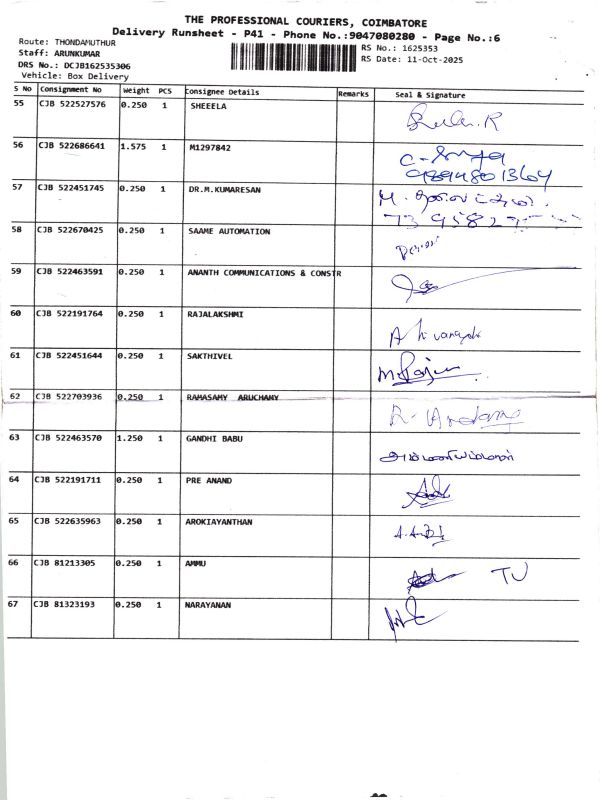 THE PROFESSIONAL COURIERS, COIMBATORE
Delivery Runsheet - P41 - Phone No.:9047080280 - Page No.:6
Route: THONDAMUTHUR
Staff: ARUNKUMAR
DRS No.: DCJB162535306
Vehicle: Box Delivery
RS No.: 1625353
RS Date: 11-Oct-2025
S No Consignment No Weight PCS Consignee Details Remarks Seal & Signature
55 CJB 522527576 0.250 1 SHEEELA
56 CJB 522686641 1.575 1 M1297842
57 CJB 522451745 0.250 1 DR.M.KUMARESAN
58 CJB 522670425 0.250 1 SAAME AUTOMATION
59 CJB 522463591 0.250 1 ANANTH COMMUNICATIONS & CONSTR
60 CJB 522191764 0.250 1 RAJALAKSHMI
61 CJB 522451644 0.250 1 SAKTHIVEL
62 CJB 522703936 0.250 1 RAMASAMY ARUCHAMY
63 CJB 522463570 1.250 1 GANDHI BABU
64 CJB 522191711 0.250 1 PRE ANAND
65 CJB 522635963 0.250 1 AROKIAYANTHAN
66 CJB 81213305 0.250 1 AMMU
67 CJB 81323193 0.250 1 NARAYANAN